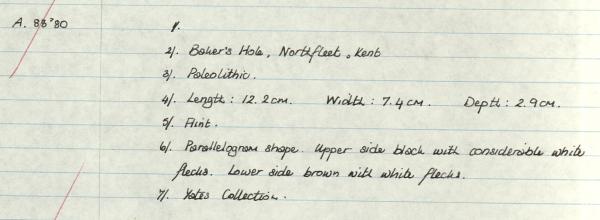 A. 88'80
1/.
2/. Baker's Hole, Northfleet, Kent
3/. Paleolithic.
4/. Length: 12.2cm. Width: 7.4cm. Depth: 2.9cm.
5/. Flint.
6/. Parallelogram shape. Upper side black with considerable white
flecks. Lower side brown with white flecks.
7/. Yates Collection.